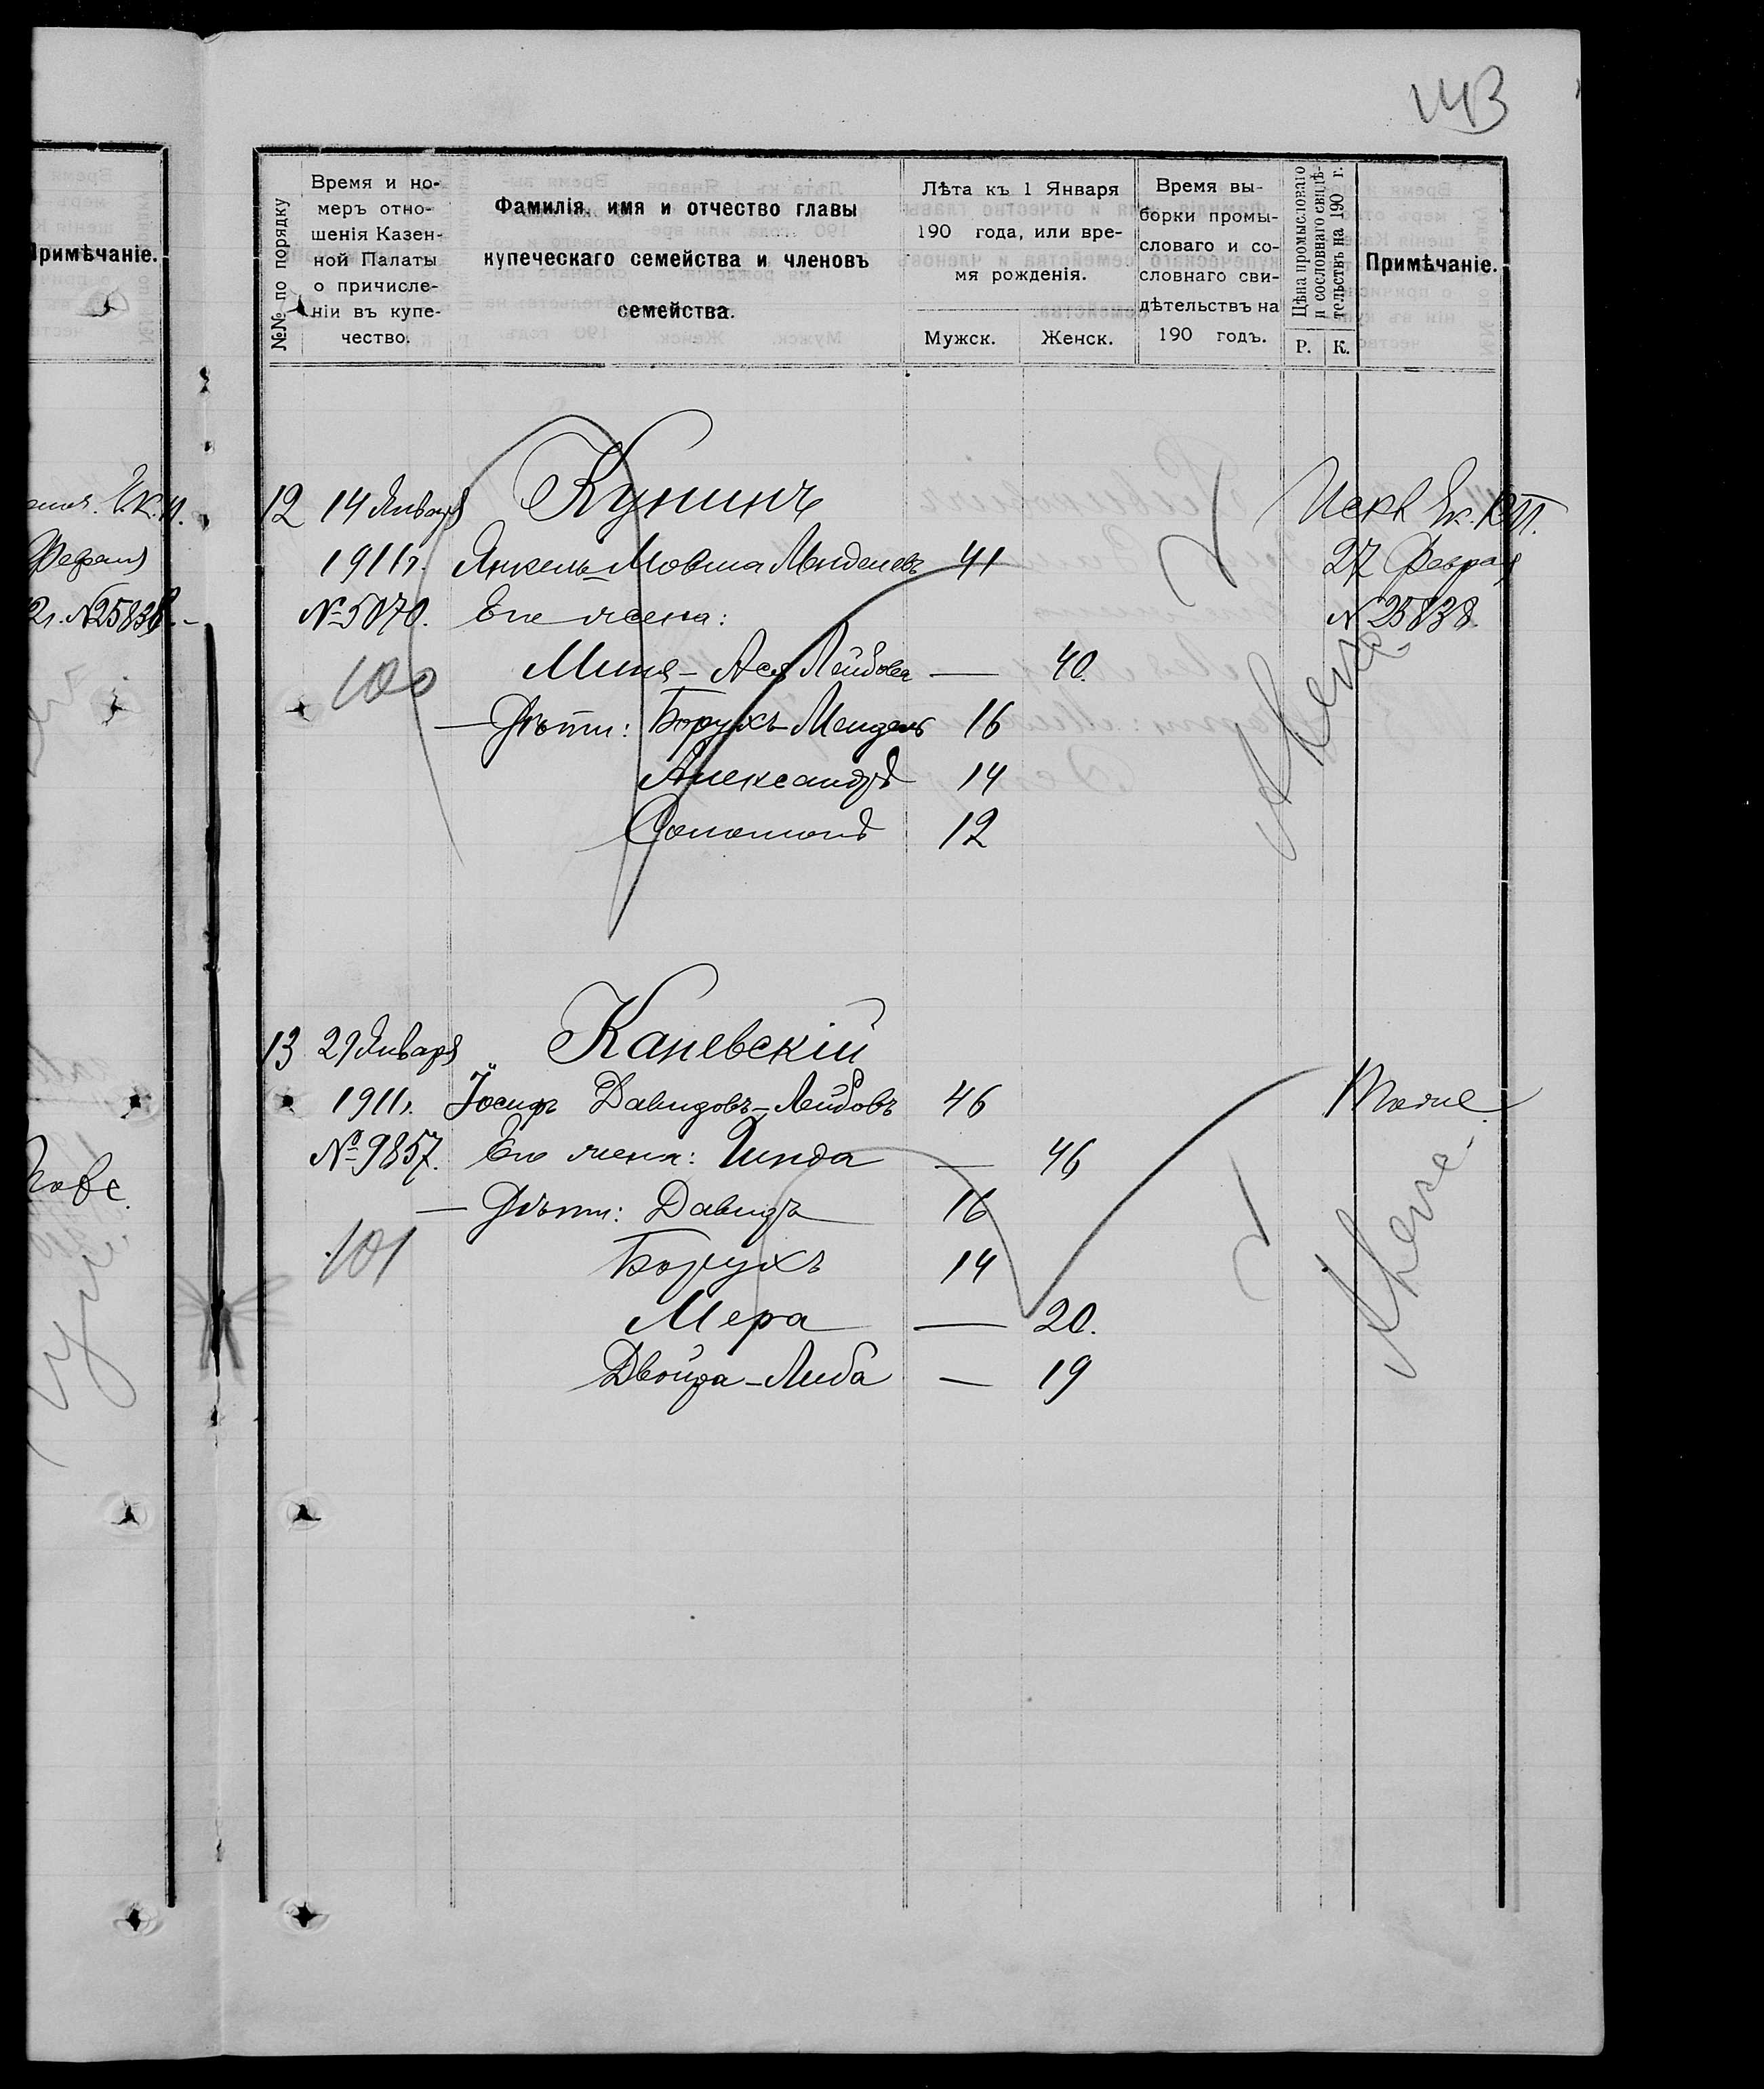 143
Примѣчаніе.
№№ по порядку
Время и но-
меръ отно-
шенія Казен-
ной Палаты
о причисле-
ніи въ купе-
чество.
Фамилія, имя и отчество главы
купеческаго семейства и членовъ
семейства.
Лѣта къ 1 Января
190 года, или вре-
мя рожденія.
Мужск.
Женск.
Время вы-
борки промы-
словаго и со-
словнаго сви-
дѣтельствъ на
190 годъ.
Цѣна промысловаго
и сословнаго свидѣ-
тельствъ на 190 г.
Р. К.
Примѣчаніе.
12 14 Января Кунинъ Искл Ек. К.П.
1911г. Янкель-Мовша Менделевъ 41 27 Февраля
№ 5070. Его жена: № 25838.
100 Миня-Ася Лейбова — 40.
— Дѣти: Борухъ-Мендель 16
Александръ 14
Соломонъ 12
13 29 Января Каневскій
1911г. Іосифъ Давидовъ-Лейбовъ 46 Тоже
№ 9857. Его жена: Гинда — 46
— Дѣти: Давидъ 16
101 Борухъ 14
Мера — 20.
Двойра-Либа — 19
№ 25838.